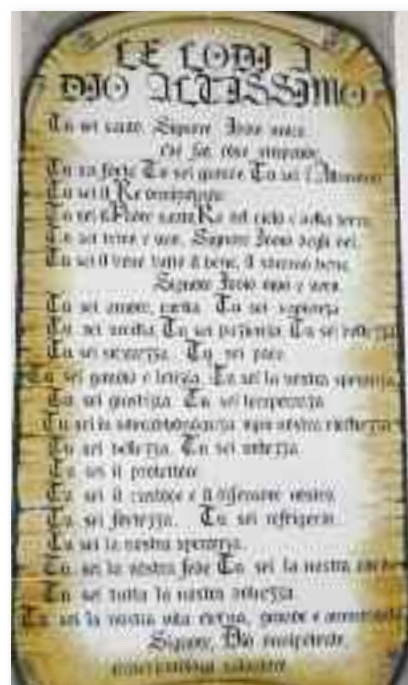 LE LODI A
DIO ALTISSIMO
Tu sei santo, Signore Iddio unico
che fai cose stupende
Tu sei forte Tu sei grande Tu sei l'Altissimo
Tu sei il Re onnipotente
Tu sei il Padre santo, Re del cielo e della terra
Tu sei trino e uno, Signore Iddio degli dei,
Tu sei il bene tutto il bene, il sommo bene,
Signore Iddio vivo e vero
Tu sei amore, carità. Tu sei sapienza
Tu sei umiltà. Tu sei pazienza. Tu sei bellezza
Tu sei sicurezza. Tu sei pace
Tu sei gaudio e letizia. Tu sei la nostra speranza
Tu sei giustizia. Tu sei temperanza
Tu sei la ogni nostra ricchezza
Tu sei bellezza. Tu sei
Tu sei il protettore
Tu sei il custode e il difensore nostro.
Tu sei fortezza. Tu sei refrigerio.
Tu sei la nostra speranza.
Tu sei la nostra fede Tu sei la nostra carità
Tu sei tutta la nostra dolcezza
Tu sei la nostra vita eterna, grande e ammirabile
Signore, Dio onnipotente,
misericordioso salvatore